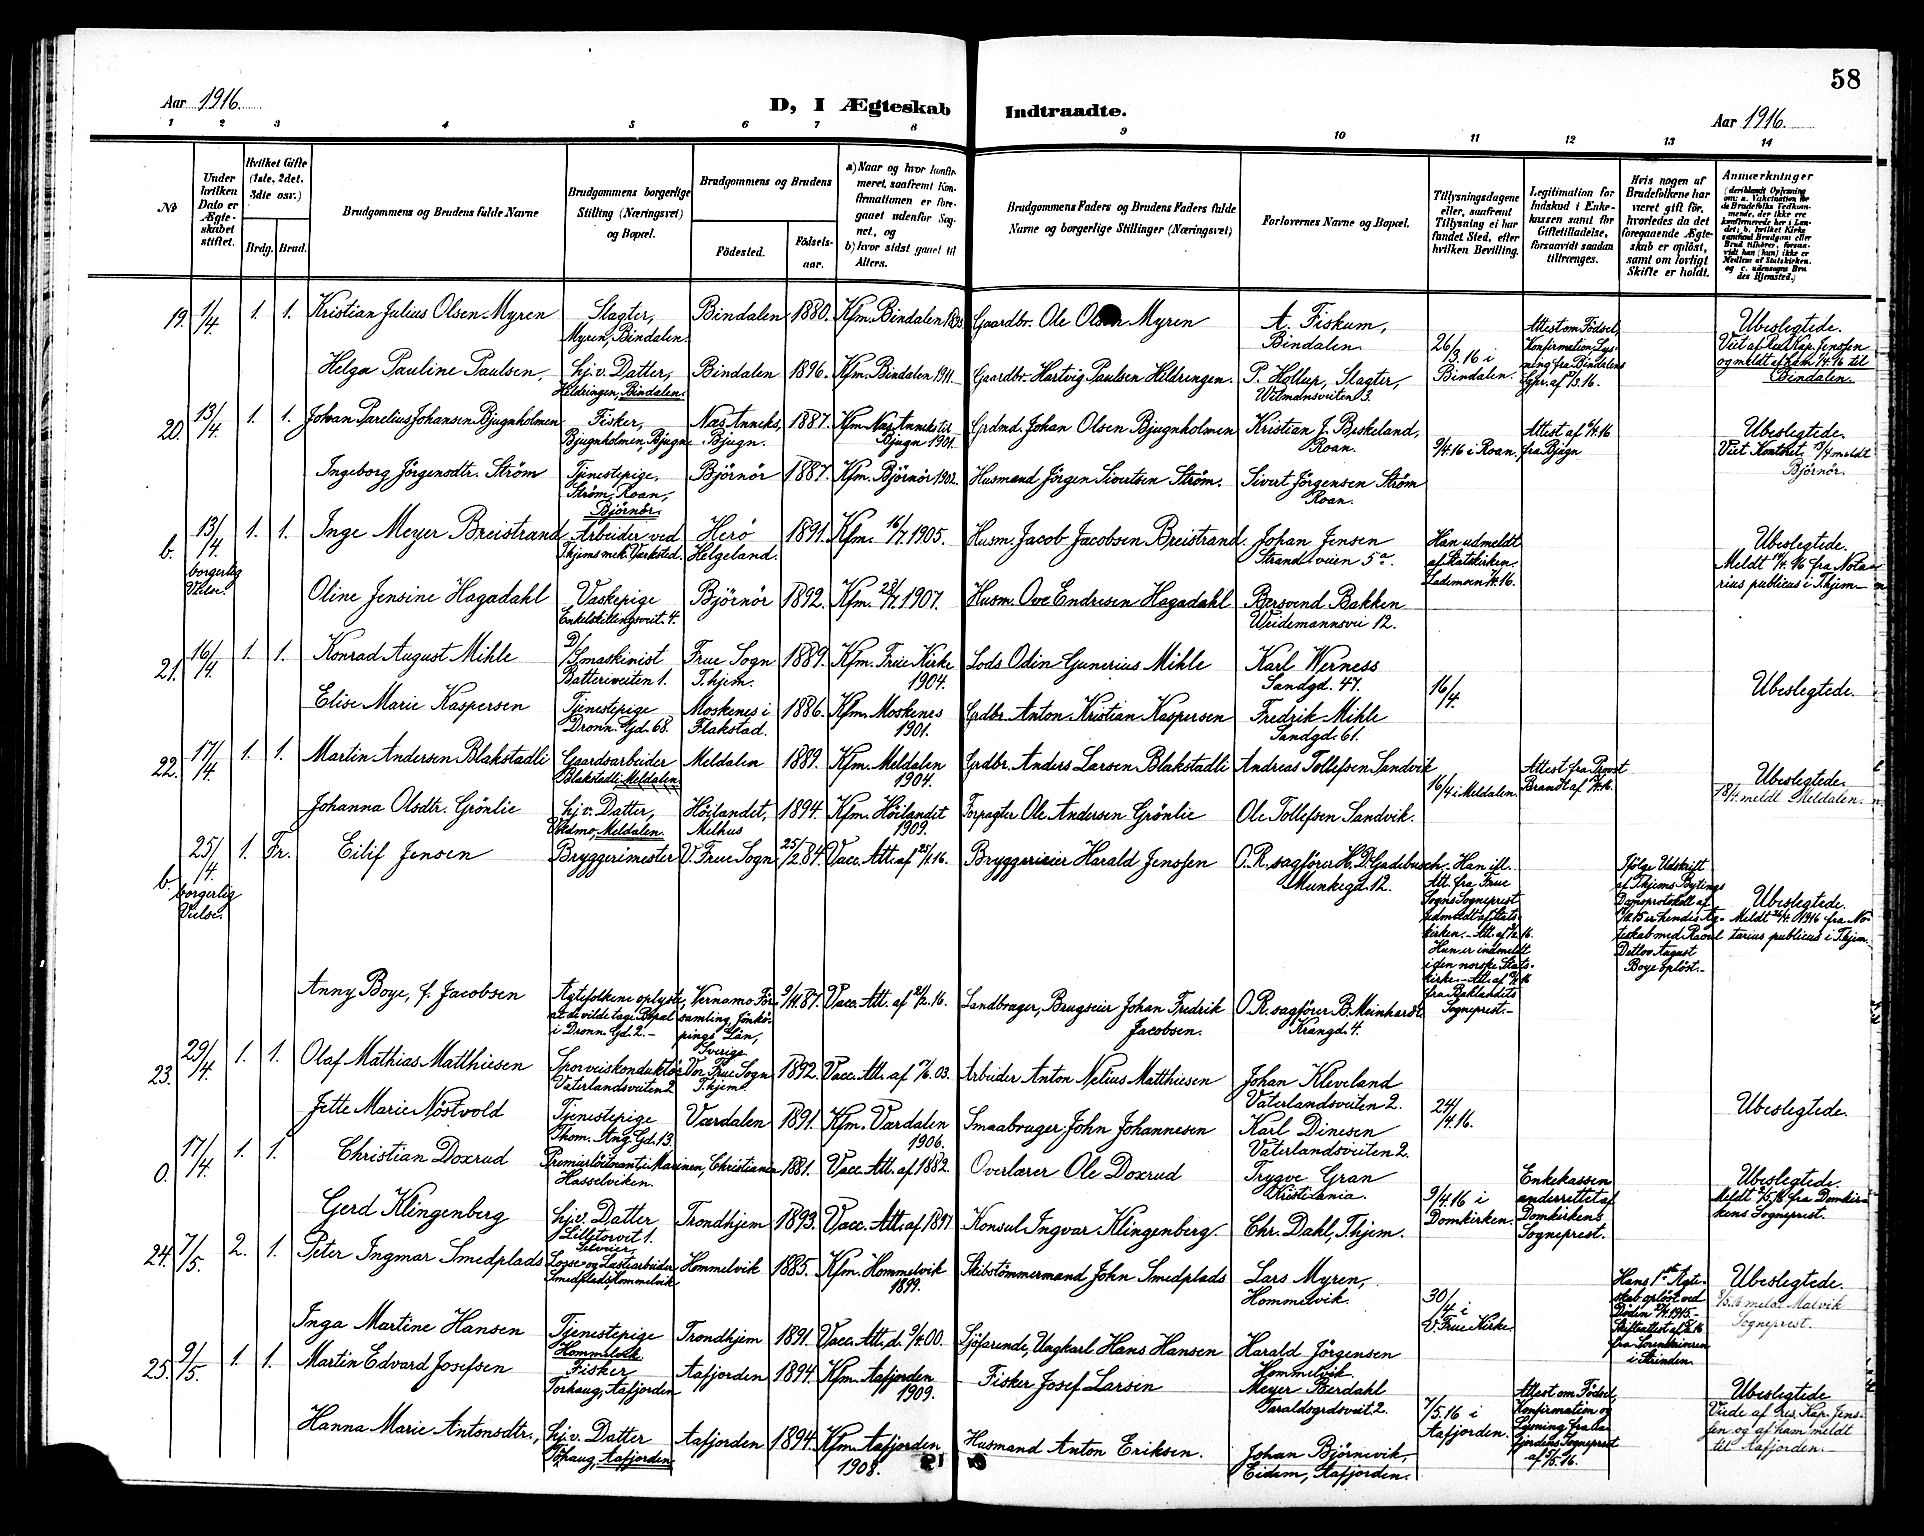 58
Aar 1916.
D, I Ægteskab Indtraadte.
Aar 1916.
1 2 3 4 5 6 7 8 9 10 11 12 13 14
No
Under hvilken Dato er Ægteskabet stiftet.
Hvilket Gifte (1ste, 2det, 3die osv.)
Brdg. Brud.
Brudgommens og Brudens fulde Navne
Brudgommens borgerlige Stilling (Næringsvei) og Bopæl.
Brudgommens og Brudens
Födested.
Födselsaar.
a) Naar og hvor konfirmeret, saafremt Konfirmationen er foregaaet udenfor Sognet, og
b) hvor sidst gaaet til Alters.
Brudgommens Faders og Brudens Faders fulde Navne og borgerlige Stillinger (Næringsvei)
Forlovernes Navne og Bopæl.
Tillysningsdagene eller, saafremt Tillysning ei har fundet Sted, efter hvilken Bevilling.
Legitimation for Indskud i Enkekassen samt for Giftetilladelse, forsaavidt saadan tiltrænges.
Hvis nogen af Brudefolkene har været gift før, hvorledes da det foregaaende Ægteskab er opløst, samt om lovligt Skifte er holdt.
Anmærkninger
19. 1/4 1. 1. Kristian Julius Olsen Myren Slagter, Myren, Bindalen. Bindalen 1880. Kfm. Bindalen Gaardbr. Ole Olsen Myren A. Fiskum, Bindalen
26/3.16 i Bindalen. Attest om Födsel, Konfirmation, Lysning fra Bindalens Spr. af Ubeslegtede. Viet af Res. Kap. Jenssen og meldt af ham til Bindalen.
Helga Pauline Paulsen, hj.v. Datter, Heldringen, Bindalen. Bindalen 1896. Kfm. Bindalen 1911. Gaardbr. Hartvig Paulsen Heldringen. P. Hollup, Slagter, Wilmansveiten 3.
20. 13/4 1. 1. Johan Parelius Johansen Bjugnholmen Fisker, Bjugnholmen, Bjugn Næs Anneks, Bjugn. 1887. Kfm. Næs Anneks til Bjugn 1901. Grdmd. Johan Olsen Bjugnholmen Kristian J. Beskeland, Roan.
9/4.16 i Roan. Attest af fra Bjugn Ubeslegtede. Viet Kontoret. meldt Björnör.
Ingeborg Jörgensdtr. Ström Tjenestepige, Ström, Roan, Björnör. Björnör 1887. Kfm. Björnör 1902. Husmand Jörgen Sivertsen Ström. Sivert Jörgensen Ström Roan.
b. 13/4 borgerlig Vielse. 1. 1. Inge Meyer Breistrand Arbeider ved T.hjems mek. Værksted. Herö Helgeland. 1891. Kfm. 16/7 1905. Husm. Jacob Jacobsen Breistrand Johan Jensen Strandveien 5a.
Han udmeldt af Statskirken. Lademoen Ubeslegtede. Meldt fra Notarius publicus i T.hjem
Oline Jensine Hagadahl Vaskepige Enkelskillingsveit. 4. Björnör 1892. Kfm. 1907. Husm. Ove Endresen Hagadahl Bersvend Bakken Weidemannsvei 12.
21. 16/4. 1. 1. Konrad August Mihle D/Smaskinist Batteriveiten 1. Frue Sogn T.hjem. 1889. Kfm. Frue Kirke 1904. Lods Odin Gunerius Mihle Karl Werness Sandgd. 47.
16/4. Ubeslegtede.
Elise Marie Kaspersen Tjenestepige Dronn. Gd. 68. Moskenes i Flakstad. 1886. Kfm. Moskenes 1901. Grdbr. Anton Kristian Kaspersen Fredrik Mihle Sandgd. 61.
22. 17/4 1. 1. Martin Andersen Blakstadli Gaardsarbeider Blakstadli Meldalen Meldalen 1889. Kfm. Meldalen 1904. Grdbr. Anders Larsen Blakstadli Andreas Tollefsen Sandvik
16/4 i Meldalen. Attest fra Provst Brandt af Ubeslegtede. 18/4. meldt Meldalen.
Johanna Olsdtr. Grönlie hj.v. Datter, Meldalen. Höilandet, Melhus 1894. Kfm. Höilandet 1909. Forpagter Ole Andersen Grönlie Ole Tollefsen Sandvik.
b. 25/4 borgerlig Vielse. 1. Fr. Eilif Jensen Bryggerimester V. Frue Sogn 25/2 84. Vacc. Att. af Bryggerieier Harald Jenssen O.R.sagförer H. D. Gadebusch. Munkegd. 12.
Han ifl. Att. fra Frue Sogns Sogneprest udmeldt af Statskirken. Hun er indmeldt i den norske Statskirke. Att. af fra Baklandets Sogneprest.
Ifölge Udskrift af T.hjems Bytings Domsprotokoll af er hendes Ægteskab med Raoul Detlov August Boye oplöst.
Ubeslegtede. Meldt 1916 fra Notarius publicus i T.hjem.
Anny Boye, f. Jacobsen Ægtefolkene oplyste, at de vilde tage Bopæl i Dronn. Gd. 2. Vernamo Forsamling, Jönköpings Län, Sverige 87. Vacc. Att. af Landbruger, Brugseier Johan Fredrik Jacobsen. O.R.sagförer B. Meinhardt. Krangd. 4.
23. 29/4. 1. 1. Olaf Mathias Matthiesen Sporveiskonduktör Vaterlandsveiten 2 Vor Frue Sogn T.hjem. 1892. Vacc. Att. af 03. Arbeider Anton Nelius Matthiesen Johan Kleveland Vaterlandsveiten 2.
24/4.16. Ubeslegtede.
Jette Marie Nöstvold Tjenestepige Thom. Ang. Gd. 13. Værdalen 1891. Kfm. Værdalen 1906. Smaabruger John Johannesen Karl Dinesen Vaterlandsveiten 2.
0. 17/4. 1. 1. Christian Doxrud Premierlöitnant i Marinen, Hasselviken. Christiania 1881. Vacc. Att. af 1882. Overlærer Ole Doxrud Trygve Gran Kristiania.
9/4.16 i Domkirken. Enkekassen underrettet af Domkirkens Sogneprest. Ubeslegtede. Meldt fra Domkirkens Sogneprest.
Gerd Klingenberg hj.v. Datter, Lilletorvet 1. Trondhjem 1893. Vacc. Att. af 1897 Konsul Ingvar Klingenberg. Chr. Dahl, T.hjem.
24. 7/5. 2. 1. Peter Ingmar Smedplads Selveier, Losse- og Lastearbeider Smedplads, Hommelvik Hommelvik 1885. Kfm. Hommelvik 1899. Skibstömmermand John Smedplads Lars Myren, Hommelvik.
30/4 i V. Frue Kirke. Hans 1ste Ægteskab oplöst ved Döden 1915. Skifteattest af fra Sorenskriveren i Strinden. Ubeslegtede. meldt Malvik Sogneprest.
Inga Martine Hansen Tjenestepige Hommelvik Trondhjem 1891. Vacc. Att. d. 00. Sjöfarende, Ungkarl Hans Hansen Harald Jörgensen Hommelvik.
25. 9/5. 1. 1. Martin Edvard Josefsen Fisker Torhaug, Aafjorden Aafjorden 1894. Kfm. Aafjorden 1909. Fisker Josef Larsen Meyer Berdahl Taraldsgrdsveit. 2.
7/5.16 i Aafjorden. Attest om Födsel, Konfirmation og Lysning fra Aafjordens Sogneprest af Ubeslegtede Viede af res. Kap. Jenssen og af ham meldt til Aafjorden.
Hanna Marie Antonsdtr., hj.v. Datter Aafjorden Aafjorden 1894. Kfm. Aafjorden 1908. Husmand Anton Eriksen. Johan Björnevik, Eidem, Aafjorden.